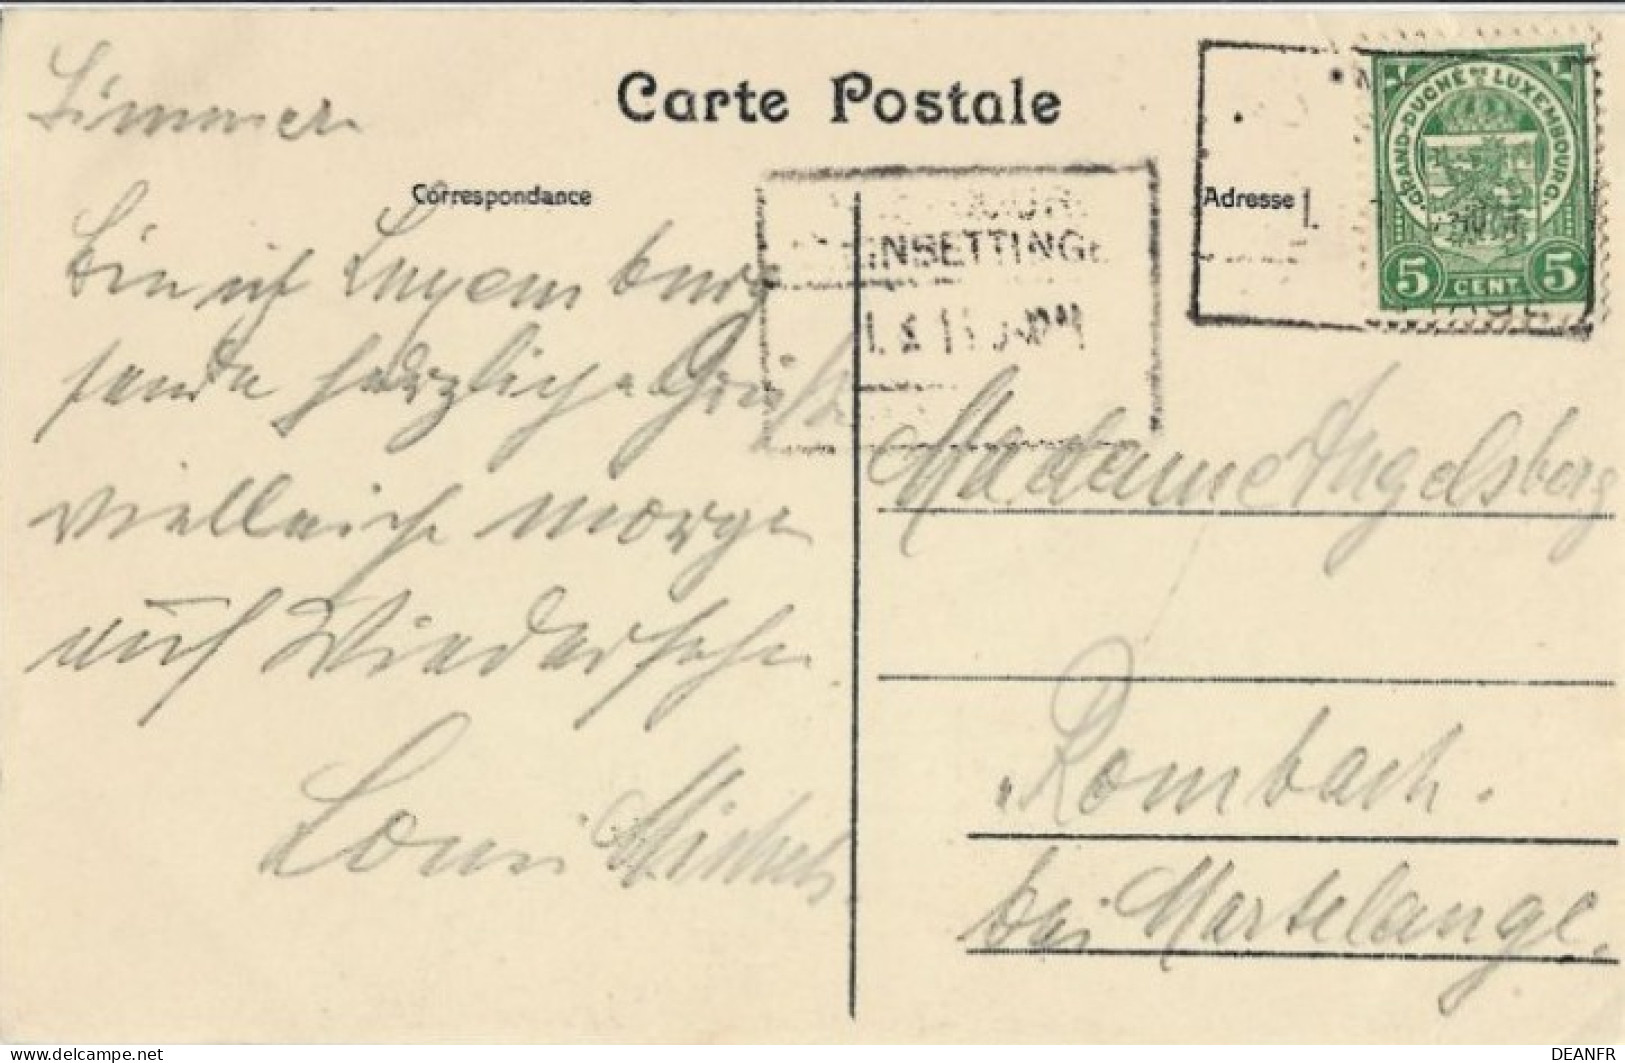 Carte Postale
Correspondance
Adresse
GRAND-DUCHÉ LUXEMBOURG
5 5
CENT.
Bin in Luxemburg
sende herzliche Grüße
vielleicht morgen
auf Wiedersehn
Michels
Madame Angelsberg
Rombach.
bei Martelange.
www.delcampe.net
DEANFR